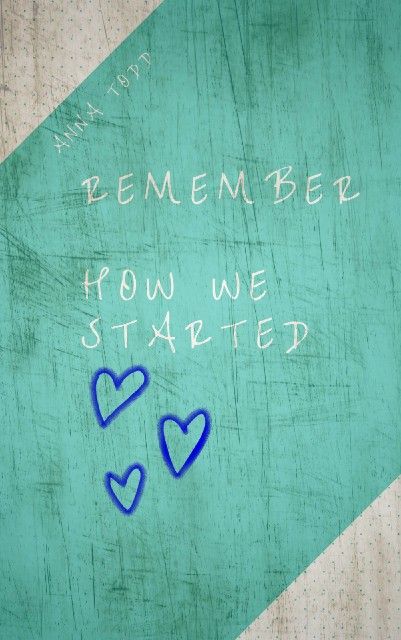 ANNA TODD
REMEMBER
HOW WE
STARTED